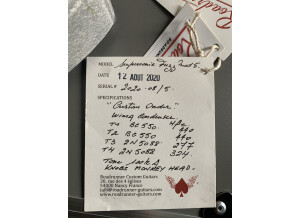 Roadrunner
MODEL Supersonic Fuzz
DATE 12 AOUT 2020
SERIAL # 2020-08/5.
SPECIFICATIONS
"Custom Order"
HFE
T1 BC550 440
T2 BC550 440
T3 2N5088 277
T4 2N5088 324
Tone
KNOBS MONKEY HEAD.
Roadrunner Custom Guitars
30, rue des 4 églises
54000 Nancy France
info@roadrunner-guitars.com
www.roadrunner-guitars.com